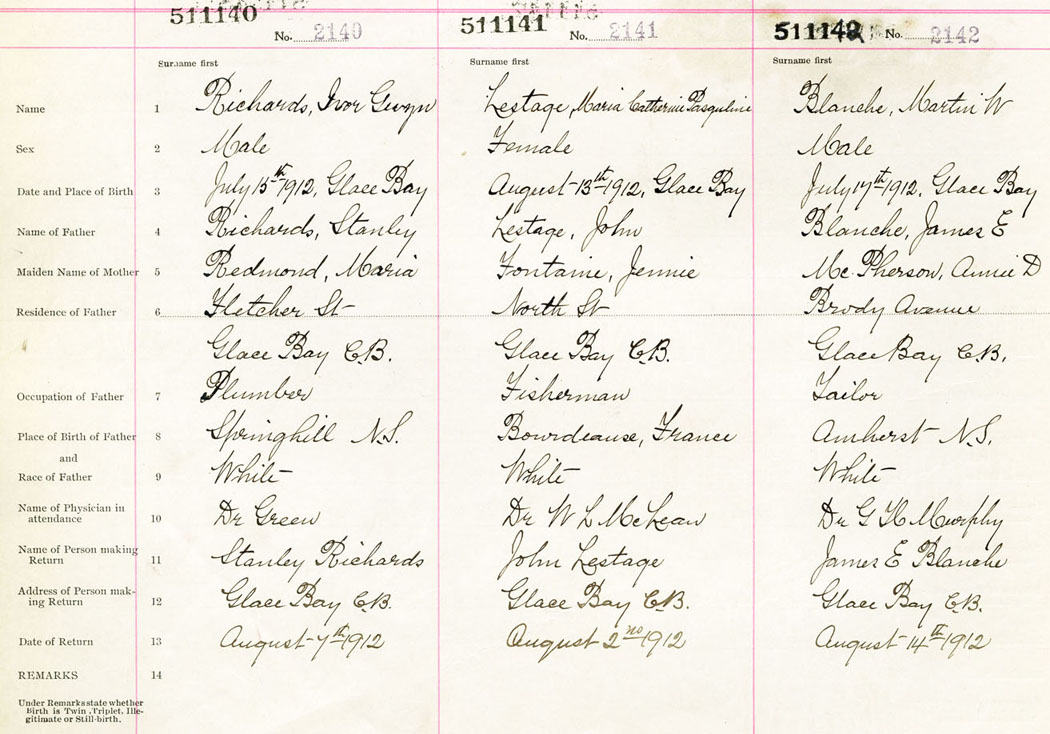 511140 No. 2140
511141 No. 2141
511142 No. 2142
Surname first Surname first Surname first
Name 1 Richards, Ivor Gwyn Lestage, Maria Catherine Pasquline Blanche, Martin W
Sex 2 Male Female Male
Date and Place of Birth 3 July 15th 1912, Glace Bay August 13th 1912, Glace Bay July 17th 1912, Glace Bay
Name of Father 4 Richards, Stanley Lestage, John Blanche, James E
Maiden Name of Mother 5 Redmond, Maria Fontaine, Jennie Mc Pherson, Annie D
Residence of Father 6 Fletcher St North St Brody Avenue
Glace Bay C.B. Glace Bay C.B. Glace Bay C.B.
Occupation of Father 7 Plumber Fisherman Tailor
Place of Birth of Father 8 Springhill N.S. Bourdeause, France Amherst N.S.
and
Race of Father 9 White White White
Name of Physician in
attendance 10 Dr Green Dr W L McLean Dr G H Murphy
Name of Person making
Return 11 Stanley Richards John Lestage James E Blanche
Address of Person mak-
ing Return 12 Glace Bay C.B. Glace Bay C.B. Glace Bay C.B.
Date of Return 13 August 7th 1912 August 2nd 1912 August 14th 1912
REMARKS 14
Under Remarks state whether
Birth is Twin, Triplet, Ille-
gitimate or Still-birth.